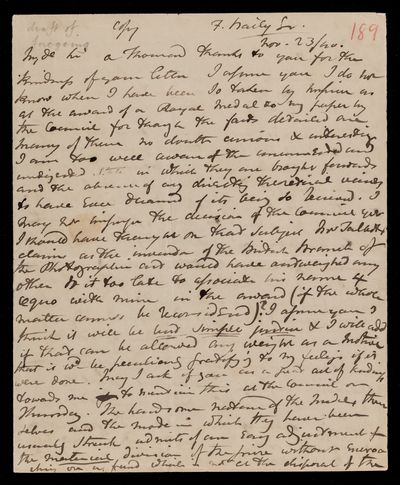 draft of
Copy
F. Baily Sr.
189
Nov. 23/40.
My dr Sir a thousand thanks to you for the
kindness of your letter I assure you I do not
know when I have been so taken by surprise as
at the award of a Royal Medal to my paper by
the Council for though the facts detailed are
many of them no doubt curious & interesting
I am too well aware of the unconnected and
undigested state in which they are brought forwards
and the absence of any directly theoretical views
to have ever dreamed of its being so received. I
may not impugn the decision of the Council yet
I should have thought on that subject Mr Talbot's
claims as the inventor of the British Branch of
the Photographic art would have outweighed any
other Is it too late to associate his name ex
equo with mine in the award (if the whole
matter cannot be reconsidered)? I assure you I
think it will be but simple justice & I will add
if that can be allowed any weight as a motive
that it wd be peculiarly gratifyg to my feelings if it
were done. May I ask if you as a great act of kindness
towards me to mention this at the Council on
Thursday. The handsome nature of the Medals them
selves and the mode in which they have been
usually struck admits of an easy adjustment for
the material division of the prize without encroa
ching on a fund which is not at the disposal of the